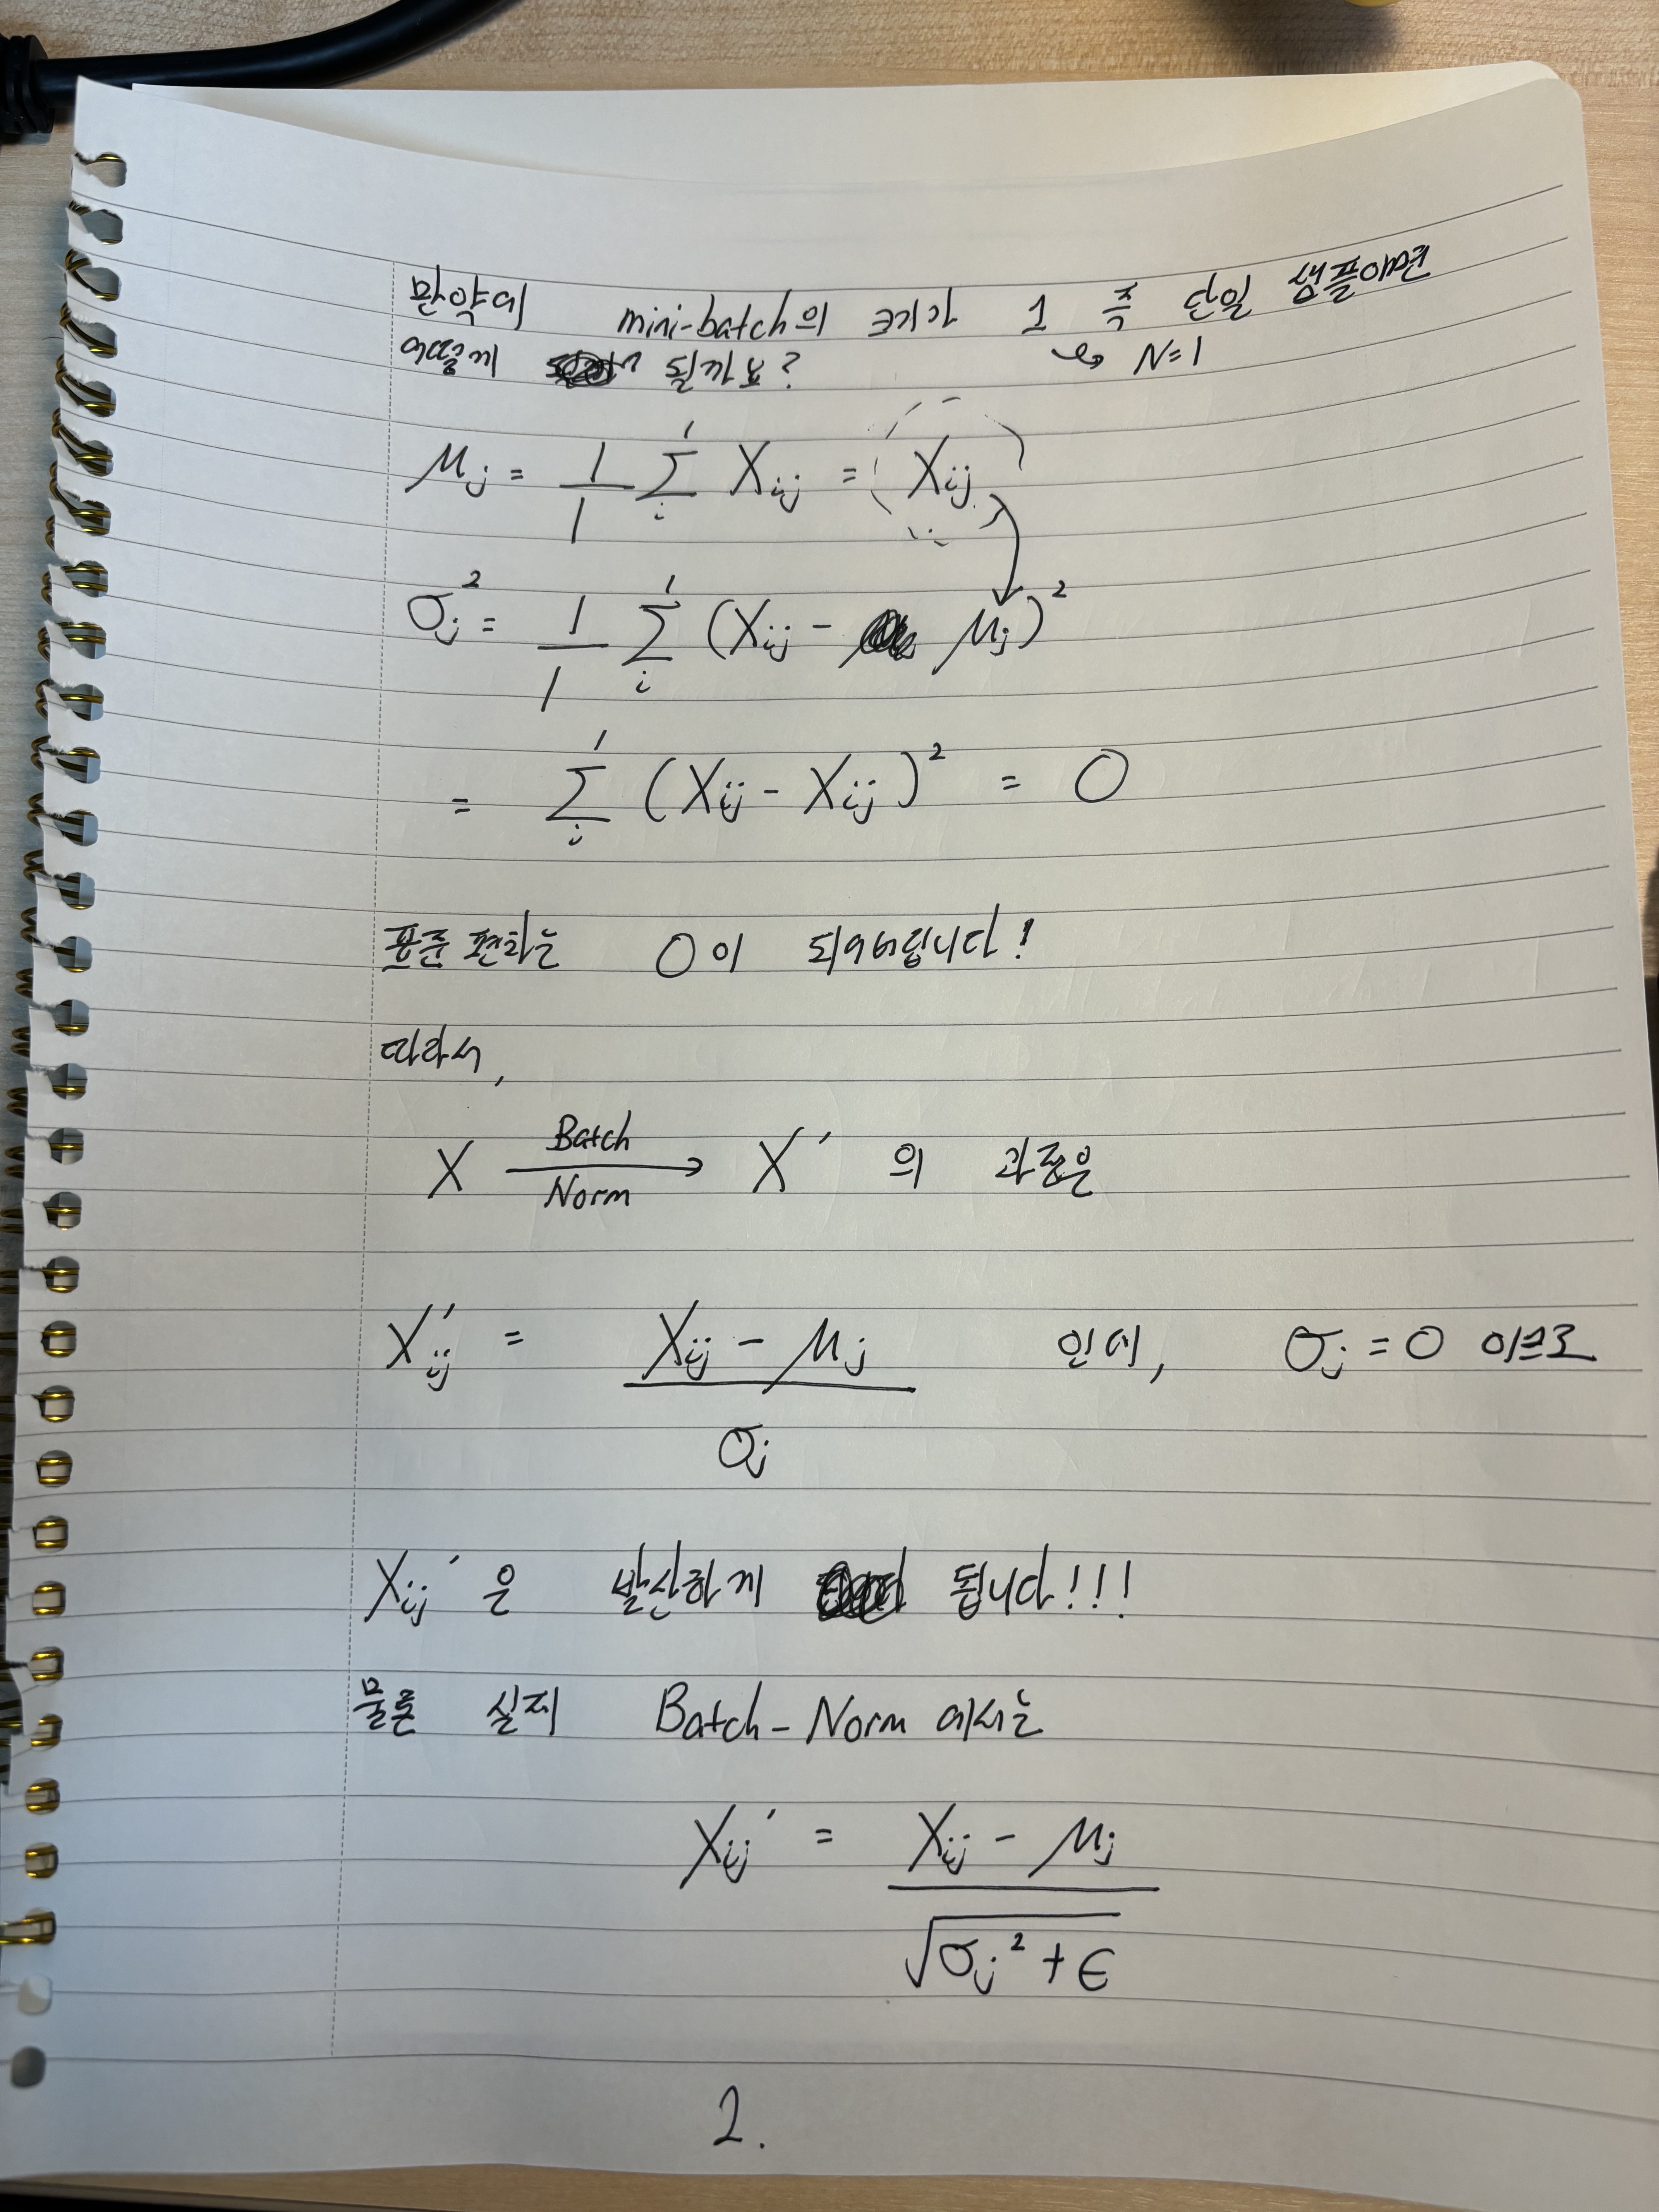 만약에 mini-batch의 크기가 1 즉 단일 샘플이면
↳ N=1
어떻게 될까요?
μj = 1/1 Σ_i^1 Xij = Xij
σj² = 1/1 Σ_i^1 (Xij - μj)²
= Σ_i^1 (Xij - Xij)² = 0
표준 편차는 0이 되어버립니다!
따라서,
X Batch Norm → X′ 의 과정은
X′ij = (Xij - μj) / σj 인데, σj = 0 이므로
Xij′은 발산하게 됩니다!!!
물론 실제 Batch-Norm 에서는
Xij′ = (Xij - μj) / √(σj² + ε)
2.